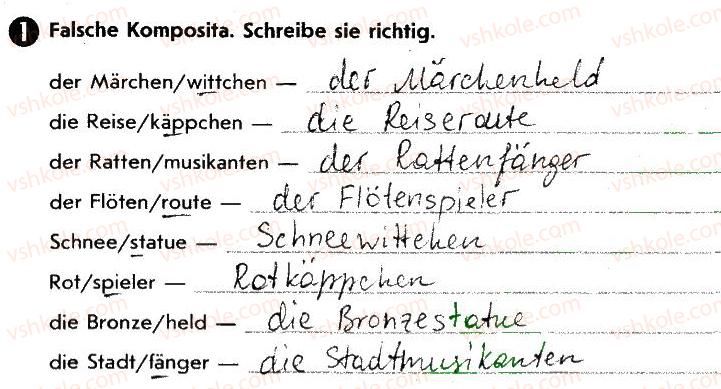 1 Falsche Komposita. Schreibe sie richtig.
der Märchen/wittchen — der Märchenheld
die Reise/käppchen — die Reiseroute
der Ratten/musikanten — der Rattenfänger
der Flöten/route — der Flötenspieler
Schnee/statue — Schneewittchen
Rot/spieler — Rotkäppchen
die Bronze/held — die Bronzestatue
die Stadt/fänger — die Stadtmusikanten
vshkole.com